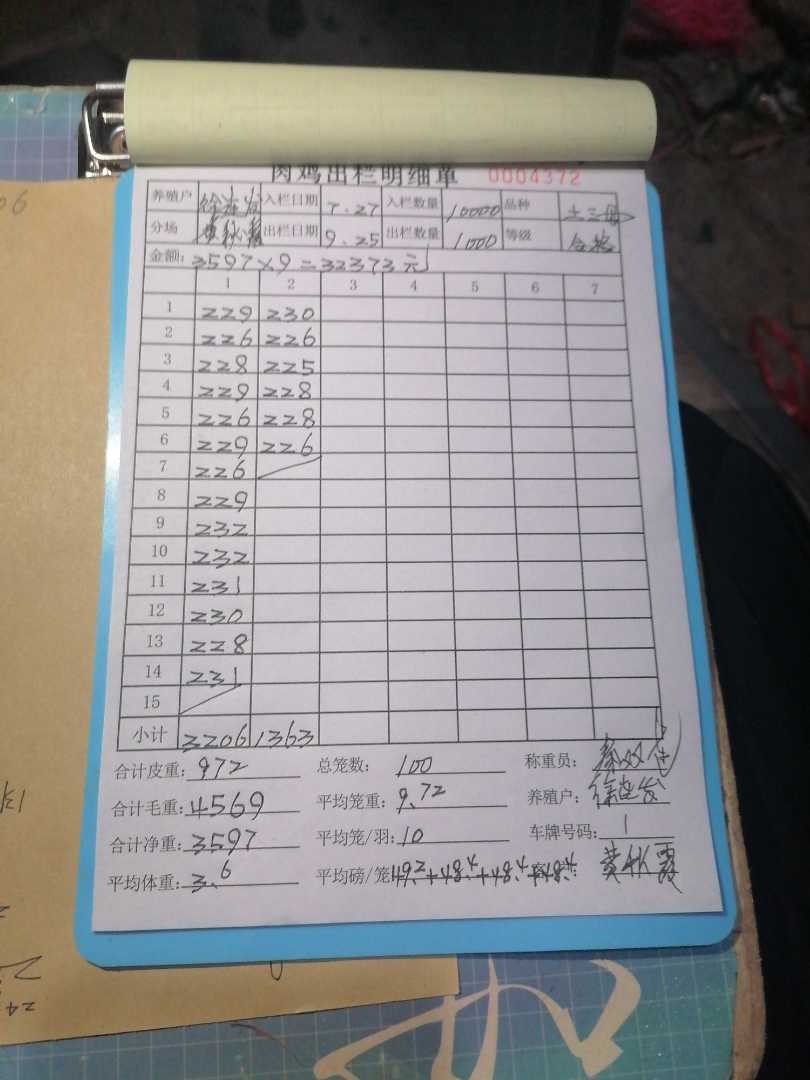 肉鸡出栏明细单 0004372
养殖户 入栏日期 7.27 入栏数量 10000 品种 土三
分场 出栏日期 9.25 出栏数量 1000 等级 合格
金额: 3597×9=32373元
1 2 3 4 5 6 7
1 229 230
2 226 226
3 228 225
4 229 228
5 226 228
6 229 226
7 226
8 229
9 232
10 232
11 231
12 230
13 228
14 231
15
小计 3206 1363
合计皮重: 972 总笼数: 100 称重员:
合计毛重: 4569 平均笼重: 9.72 养殖户: 徐发
合计净重: 3597 平均笼/羽: 10 车牌号码: 1
平均体重: 3.6 平均磅/笼 49.2+48.4+48.4+48.4 黄秋霞